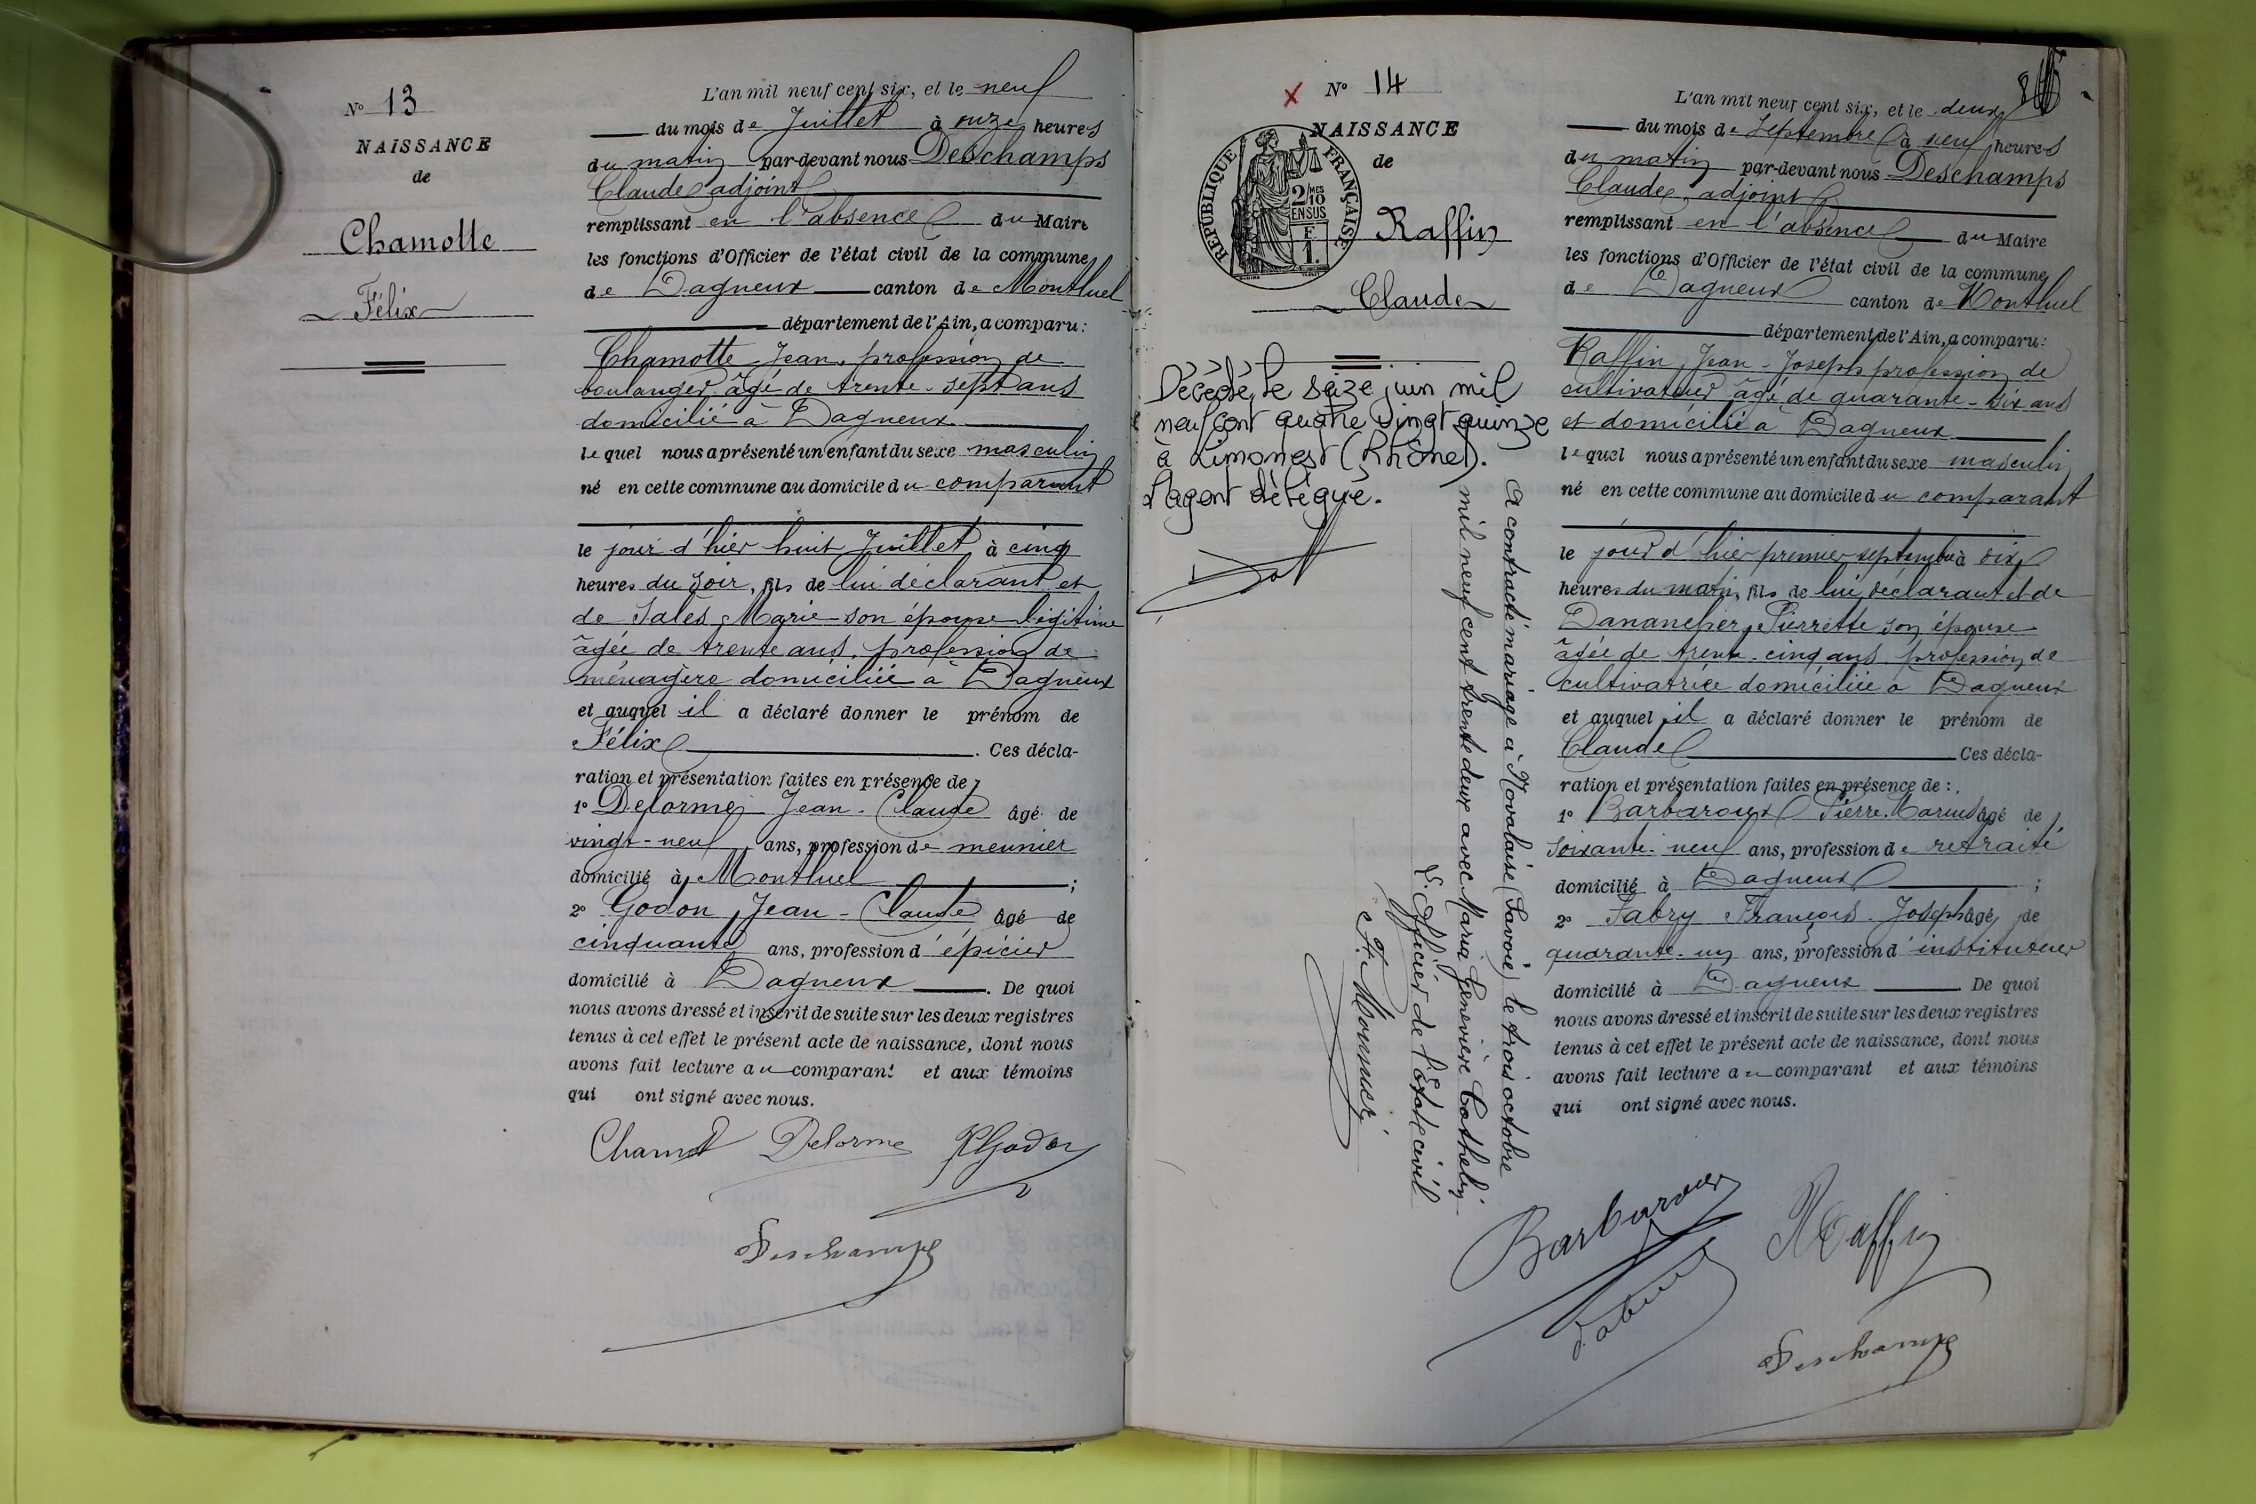 N° 13
NAISSANCE
de
Chamotte
Félix
L'an mil neuf cent six, et le neuf
du mois de Juillet à onze heures
du matin par-devant nous Deschamps
Claude adjoint
remplissant en l'absence du Maire
les fonctions d'Officier de l'état civil de la commune
de Dagneux canton de Montluel
département de l'Ain, a comparu :
Chamotte Jean, profession de
boulanger âgé de trente-sept ans
domicilié à Dagneux
lequel nous a présenté un enfant du sexe masculin
né en cette commune au domicile du comparant
le jour d'hier huit Juillet à cinq
heures du soir, fils de lui déclarant et
de Sales, Marie son épouse légitime
âgée de trente ans, profession de
ménagère domiciliée à Dagneux
et auquel il a déclaré donner le prénom de
Félix . Ces décla-
ration et présentation faites en présence de
1° Delorme Jean-Claude âgé de
vingt-neuf ans, profession de meunier
domicilié à Montluel ;
2° Godon, Jean-Claude âgé de
cinquante ans, profession d'épicier
domicilié à Dagneux . De quoi
nous avons dressé et inscrit de suite sur les deux registres
tenus à cet effet le présent acte de naissance, dont nous
avons fait lecture au comparant et aux témoins
qui ont signé avec nous.
Delorme
Deschamps
N° 14
NAISSANCE
de
RÉPUBLIQUE FRANÇAISE
2/10 MES
EN SUS
F.
1.
Raffin
Claude
Décédé le seize juin mil
neuf cent quatre vingt quinze
à Limonest (Rhône).
L'agent délégué.
A contracté mariage à Novalaise (Savoie) le trois octobre
mil neuf cent trente deux avec Maria Geneviève Cathelin
L'Officier de l'Etat civil
F. Monnier
L'an mil neuf cent six, et le deux
du mois de Septembre à neuf heures
du matin par-devant nous Deschamps
Claude, adjoint
remplissant en l'absence du Maire
les fonctions d'Officier de l'état civil de la commune
de Dagneux canton de Montluel
département de l'Ain, a comparu :
Raffin, Jean-Joseph profession de
cultivateur âgé de quarante-six ans
et domicilié à Dagneux
lequel nous a présenté un enfant du sexe masculin
né en cette commune au domicile du comparant
le jour d'hier premier septembre à six
heures du matin, fils de lui déclarant et de
Dananchier, Pierrette son épouse
âgée de trente-cinq ans profession de
cultivatrice domiciliée à Dagneux
et auquel il a déclaré donner le prénom de
Claude Ces décla-
ration et présentation faites en présence de :
1° Barbaroux Pierre Marius âgé de
soixante-neuf ans, profession de retraité
domicilié à Dagneux ;
2° Fabry François-Joseph âgé de
quarante-un ans, profession d'instituteur
domicilié à Dagneux De quoi
nous avons dressé et inscrit de suite sur les deux registres
tenus à cet effet le présent acte de naissance, dont nous
avons fait lecture au comparant et aux témoins
qui ont signé avec nous.
Barbaroux
Raffin
Deschamps